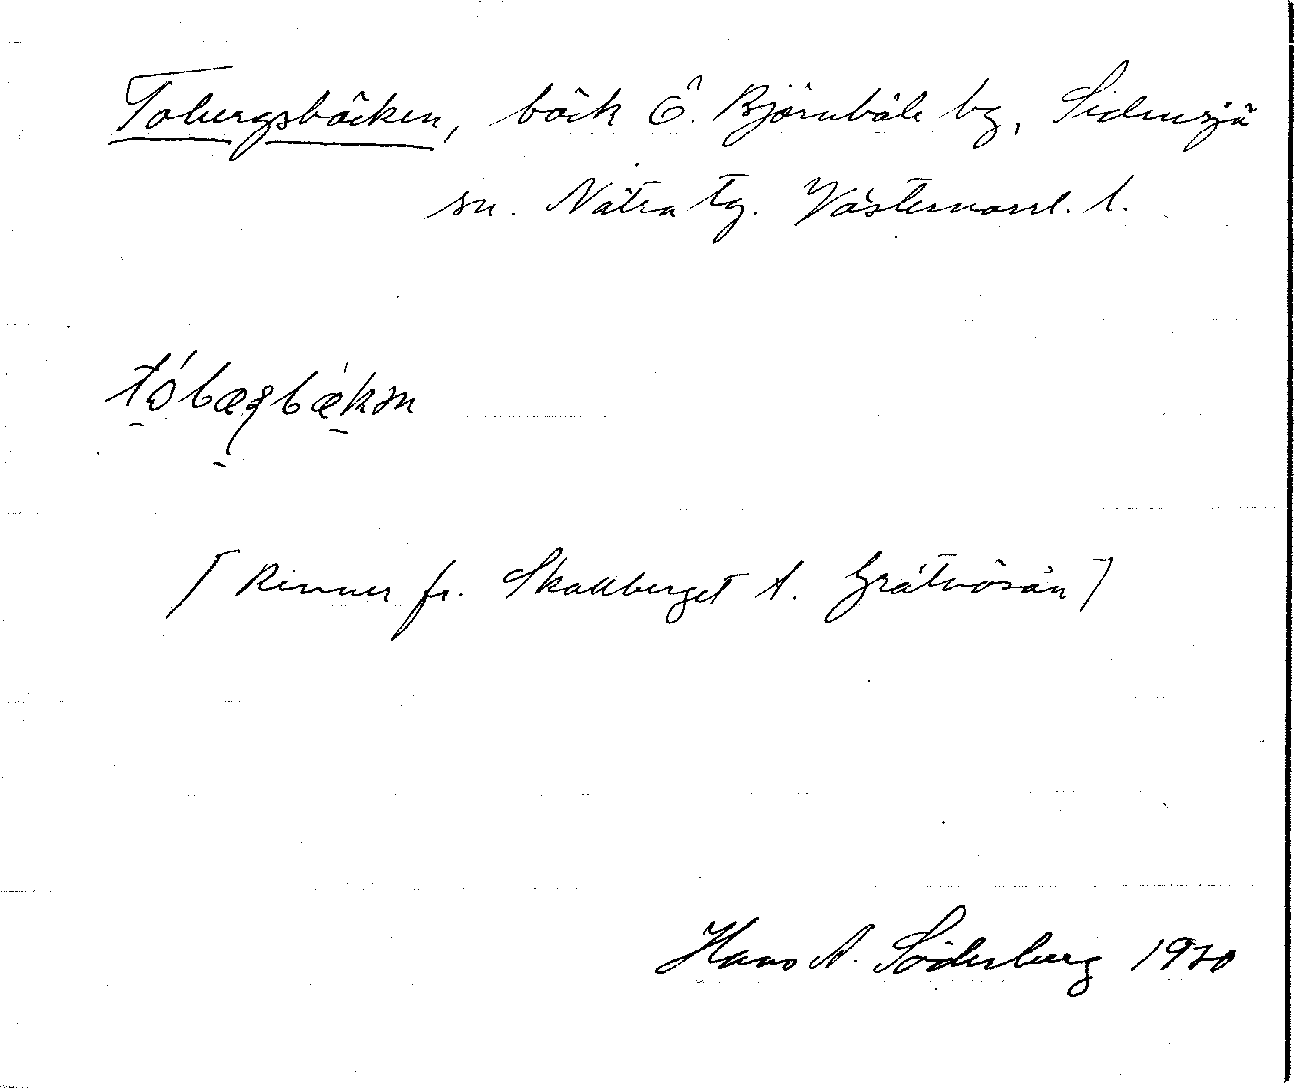 Tobergsbäcken, bäck Ö. Björnböle by, Sidensjö
sn. Nätra tg. Västernorrl. l.
[Rinner fr. Skallberget t. Gråtnösån]
Hans A. Söderberg 1970